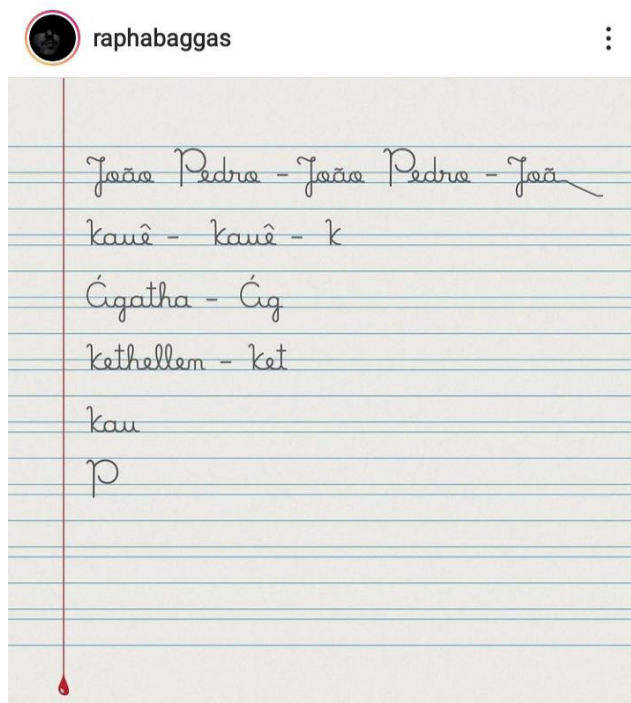 raphabaggas
João Pedro - João Pedro - Joã
kauê - kauê - k
Ágatha - Ág
kethellem - ket
kau
P